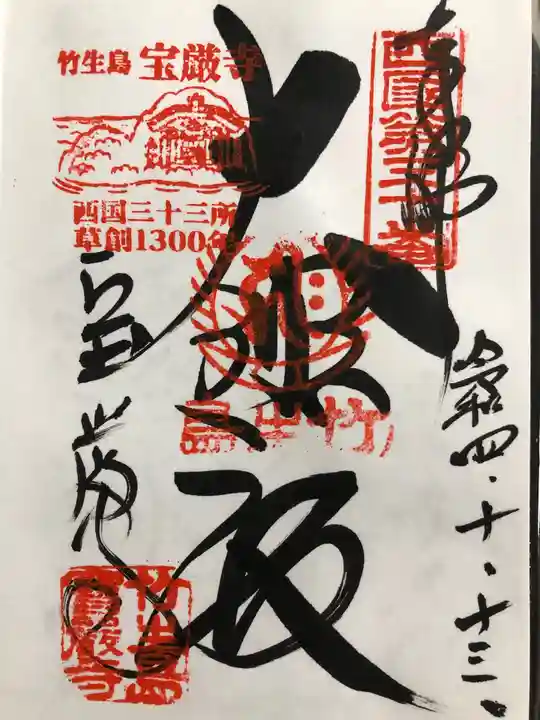 奉拝
西国第三十番
令和四・十・十三
大悲殿
竹生島
竹生島 宝厳寺
西国三十三所
草創1300年
宝厳寺
竹生島寶厳寺